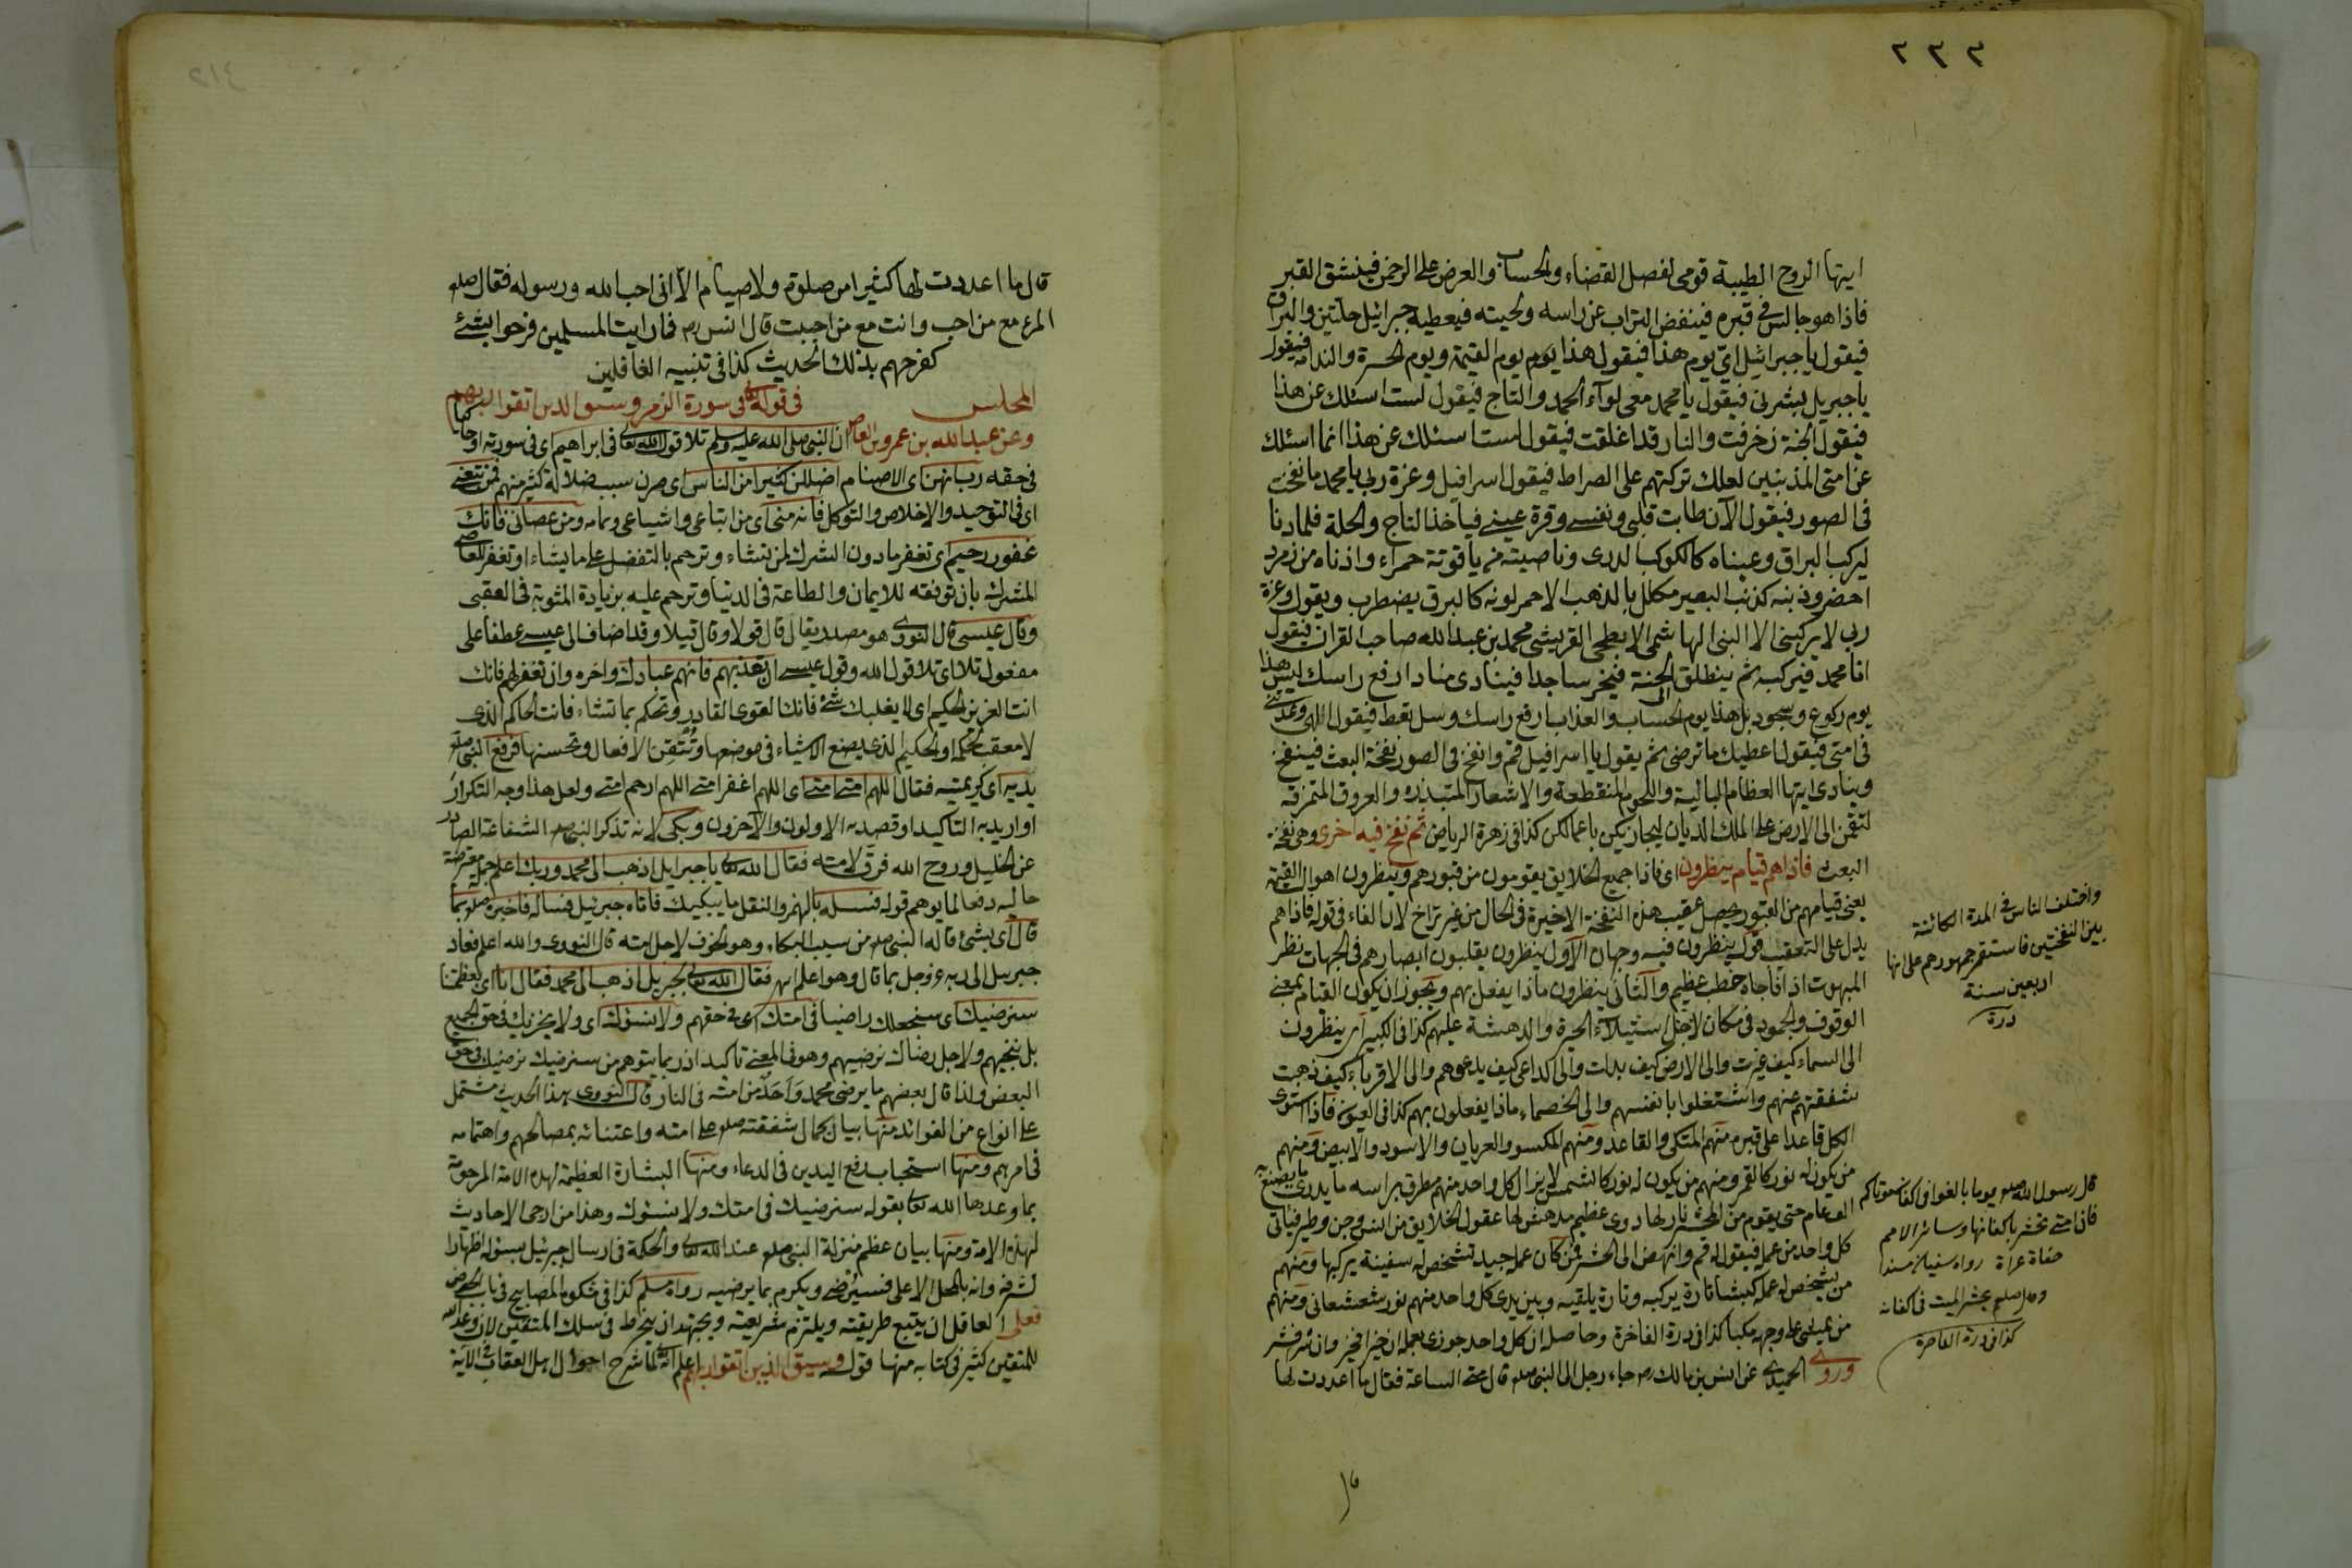 ٢٣٣
ايتها الروح الطيبة قومي لفصل القضاء والحساب والعرض على الرحمن فينشق القبر
فاذا هو جالس في قبره فينفض التراب عن راسه ولحيته فيعطيه جبرائيل حلتين والبراق
فيقول يا جبرائيل اي يوم هذا فيقول هذا يوم يوم القيمة ويوم الحسرة والندامة فيقول
يا جبريل بشرني فيقول يا محمد معي لوآء الحمد والتاج فيقول لست اسئلك عن هذا
فيقول الجنة زخرفت والنار قد اغلقت فيقول لست اسئلك عن هذا انما اسئلك
عن امتي المذنبين لعلك تركتهم على الصراط فيقول اسرافيل وعزة ربي يا محمد ما نفخت
في الصور فيقول الآن طابت قلبي ونفسي وقرة عيني فيأخذ التاج والحلة فلما دنا
ليركب البراق وعيناه كالكوكب الدري وناصيته من ياقوتة حمراء واذناه من زمرد
اخضر وذنبه كذنب البعير مكلل بالذهب الاحمر لونه كالبرق يضطرب ويقول وعزة
ربي لا يركبني الا النبي الهاشمي الابطحي القريشي محمد بن عبد الله صاحب القران فيقول
انا محمد فيركبه ثم ينطلق الى الجنة فيخر ساجدا فينادى مناد ارفع راسك ليس هذا
يوم ركوع وسجود بل هذا يوم الحساب والعذاب ارفع راسك وسل تعط فيقول الهي وعدتني
في امتي فيقول اعطيك ما ترضى ثم يقول يا اسرافيل قم وانفخ في الصور نفخة البعث فينفخ
وينادي ايتها العظام البالية واللحوم المنقطعة والاشعار المتبددة والعروق المتمزقة
لتقمن الى الارض على الملك الديان ليجازيكن باعمالكن كذا في زهرة الرياض ثم نفخ فيه اخرى وهي نفخة
البعث فاذا هم قيام ينظرون اي فاذا جميع الخلايق يقومون من قبورهم وينظرون اهوال القيمة
يعني قيامهم من القبور يحصل عقيب هذه النفخة الاخيرة في الحال من غير تراخ لان الفاء في قوله فاذا هم
يدل على التعقيب قوله ينظرون فيه وجهان الاول ينظرون يقلبون ابصارهم في الجهات نظر
المبهوت اذا فاجاه خطب عظيم والثاني ينظرون ماذا يفعل بهم ويجوز ان يكون القيام بمعنى
الوقوف والجمود في مكان لاجل استيلاء الحيرة والدهشة عليهم كذا في الكبير ينظرون
الى السماء كيف غيرت والى الارض كيف بدلت والى الداعي كيف يدعوهم والى الاقرباء كيف ذهبت
شفقتهم عنهم واشتغلوا بانفسهم والى الخصماء ماذا يفعلون بهم كذا في العيون فاذا استوى
الكل قاعدا على قبره منهم المتكئ والقاعد ومنهم المكسو والعريان والاسود والابيض ومنهم
من يكون له نور كالقمر ومنهم من يكون له نور كالشمس لا يزال كل واحد منهم مطرق براسه ما يدري ما يصنع به
الف عام حتى يقوم من المحشر نار لها دوي عظيم مدهش لها عقول الخلايق من انس وجن وطير فيأتي
كل واحد من عمله فيقول له قم وانهض الى المحشر فمن كان عمله جيد تشخص له سفينة يركبها ومنهم
من يشخص له عمله كبشا تارة يركبه وتارة يلقيه وبين يدي كل واحد منهم نور شعشعاني ومنهم
من يمشي على وجهه مكبا كذا في درة الفاخرة وحاصله ان كل واحد جوزي بعمله ان خيرا فخير وان شر فشر
وروى الحميدي عن انس بن مالك رض جاء رجل الى النبي صلعم قال متى الساعة فقال ما اعددت لها
واختلف الناس في المدة الكائنة
بين النفختين فاستقر جمهورهم على انها
اربعين سنة
درة
قال رسول الله صلعم يوما بالغوا في اكفان موتاكم
فان امتي تحشر باكفانها وسائر الامم
حفاة عراة رواه سفيان مسندا
وقال صلعم يحشر الميت في اكفانه
كذا في درة الفاخرة
قا
قال ما اعددت لها كثيرا من صلوة ولا صيام الا اني احب الله ورسوله فقال صلعم
المرء مع من احب وانت مع من احببت قال انس رض فما رايت المسلمين فرحوا بشئ
كفرحهم بذلك الحديث كذا في تنبيه الغافلين
المجلس في قوله تعالى في سورة الزمر وسيق الذين اتقوا ربهم
وعن عبد الله بن عمرو بن العاص ان النبي صلى الله عليه وسلم تلا قول الله تعالى في ابراهيم اي في سورته او حكاية
في حقه رب انهن اي الاصنام اضللن كثيرا من الناس اي صرن سبب ضلالة كثير منهم فمن تبعني
اي في التوحيد والاخلاص والتوكل فانه مني اي من اتباعي واشياعي وتمامه ومن عصاني فانك
غفور رحيم اي تغفر ما دون الشرك لمن تشاء وترحم بالتفضل على ما يشاء او تغفر للعاصي
المشرك بان توفقه للايمان والطاعة في الدنيا وترحم عليه بزيادة المثوبة في العقبى
وقال عيسى قال النووي هو مصدر يقال قال قولا وقال قيلا وقد اضاف الى عيسى عطفا على
مفعول تلا اي تلا قول الله وقول عيسى ان تعذبهم فانهم عبادك واخره وان تغفر لهم فانك
انت العزيز الحكيم اي لا يغلبك شئ فانك القوي القادر وتحكم بما تشاء فانت الحاكم الذي
لا معقب لحكمه او الحكيم الذي يضع الاشياء في موضعها وتتقن الافعال وتحسنها فرفع النبي صلعم
يديه اي كريمتيه فقال اللهم امتي امتي اي اللهم اغفر امتي اللهم ارحم امتي ولعل هذا وجه التكرار
او اريد به التاكيد او قصد به الاولون والآخرون وبكى لانه تذكر النبي صلعم الشفاعة الصادر
عن الخليل وروح الله فرق لامته فقال الله تعالى يا جبرايل اذهب الى محمد وربك اعلم جملة معترضة
حاليه دفعا لما يوهم قوله فسله بالهمز والنقل ما يبكيك فاتاه جبرئيل فساله فاخبره صلعم بما
قال اي بشئ قاله النبي صلعم من سبب البكاء وهو الخوف لاجل امته قال النووي والله اعلم فعاد
جبريل الى ربه عز وجل بما قال وهو اعلم به فقال الله تعالى لجبريل اذهب الى محمد فقال انا اي بعظمتنا
سنرضيك اي سنجعلك راضيا في امتك اي في حقهم ولا نسؤك اي ولا يحزنك في حق الجميع
بل ننجيهم ولاجل رضاك نرضيهم وهو في المعنى تاكيد اذ ربما يتوهم من سنرضيك نرضيك في حق
البعض ولذا قال بعضهم ما يرضى محمد واحد من امته في النار قال النووي هذا الحديث مشتمل
على انواع من الفوائد منها بيان كمال شفقته صلعم على امته واعتنائه بمصالحهم واهتمامه
في امرهم ومنها استحباب رفع اليدين في الدعاء ومنها البشارة العظيمة لهذه الامة المرحومة
بما وعدها الله تعالى بقوله سنرضيك في امتك ولا نسؤك وهذا من ارجى الاحاديث
لهذه الامة ومنها بيان عظم منزلة النبي صلعم عند الله تعالى والحكمة في ارسال جبرئيل بسؤاله اظهارا
لشرفه وانه بالمحل الاعلى فسيرضى ويكرم بما يرضيه رواه مسلم كذا في مشكوة المصابيح في باب الحوض
فعلى العاقل ان يتبع طريقته ويلتزم شريعته ويجتهد ان ينخرط في سلك المتقين لان وعد الله
للمتقين كثير في كتابه منها قوله وسيق الذين اتقوا ربهم اعلم انه تعالى لما شرح احوال اهل العقاب في الآية